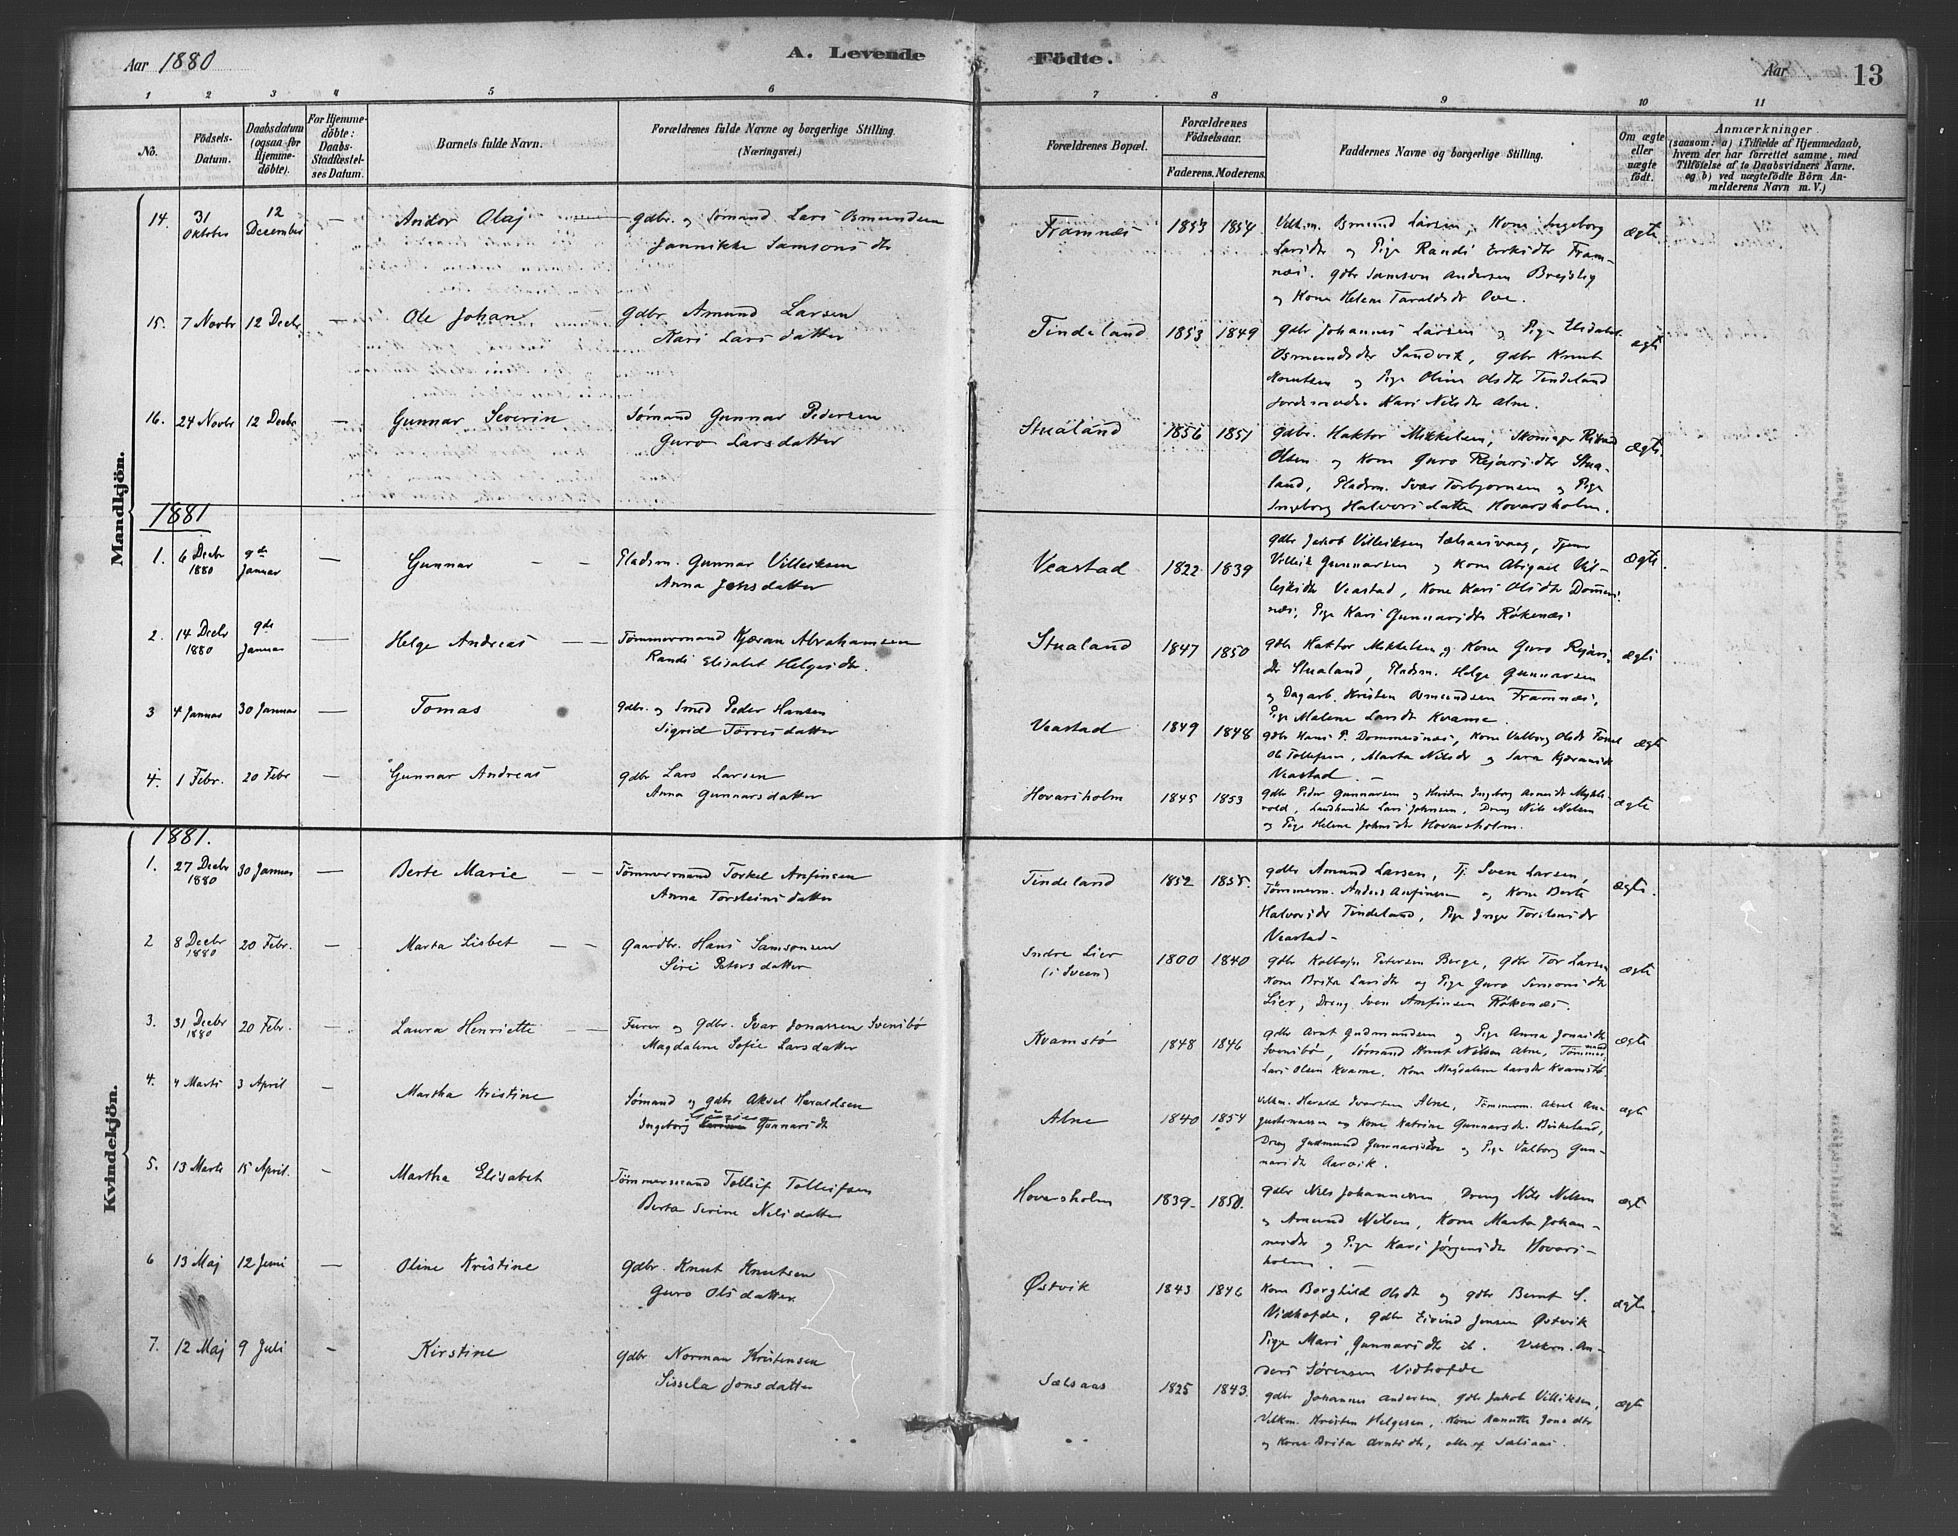 Aar 1880
A. Levende Födte.
Aar 13
1 2 3 4 5 6 7 8 9 10 11
No.
Födsels-Datum.
Daabsdatum (ogsaa for Hjemmedöbte).
For Hjemmedöbte: Daabs-Stadfæstelses Datum.
Barnets fulde Navn.
Forældrenes fulde Navne og borgerlige Stilling. (Næringsvei.)
Forældrenes Bopæl.
Forældrenes Födselsaar.
Faderens. Moderens.
Faddernes Navne og borgerlige Stilling.
Om ægte eller uægte födt.
Anmærkninger
(saasom: a) i Tilfælde af Hjemmedaab, hvem der har forrettet samme, med Tilföielse af to Daabsvidners Navne, og b) ved uægtefödte Börn Anmelderens Navn m. V.)
Mandkjön.
14. 31 Oktober 12 December — Andor Olaj
gdbr. og Sømand Lars Osmundsen
Jannikke Samsonsdtr
Framnæs 1853 1854
Velkm. Osmund Larsen, Kone Ingeborg
Larsdtr og Pige Randi Eriksdtr Fram-
næs. gdbr Samson Andersen
og Kone Helene Taraldsdtr Ove.
ægte
15. 7 Novbr 12 Decbr — Ole Johan
gdbr. Amund Larsen
Kari Larsdatter
Tindeland 1853 1849
gdbr Johannes Larsen og Pige Elisabet
Osmundsdtr Sandvik, gdbr Knut
Knutsen og Pige Oline Olsdtr Tindeland
Jordemoder Kari Nilsdtr Alne.
ægte
16. 24 Novbr 12 Decbr — Gunnar Severin
Sømand Gunnar Pedersen
Guro Larsdatter
Stualand 1856 1851
gdbr. Haktor Mikkelsen, Skomager
Olsen og Kone Guro Rejarsdtr Stua-
land, Pladsm. Ivar Torbjørnsen og Pige
Ingeborg Halvorsdatter Hovarsholm.
ægte.
1881
1. 6 Decbr 1880 9de Januar — Gunnar — —
Pladsm. Gunnar Villeiksen
Anna Jensdatter
Veastad 1822 1839
gdbr Jakob Villeiksen Sælsaasvaag, Tjener
Villeik Gunnarsen og Kone Abigael Vil-
leiksdtr Veastad, Kone Kari Olsdtr Dommers-
næs, Pige Kari Gunnarsdtr Røkenæs
ægte.
2. 14 Decbr 1880 9de Januar — Helge Andreas — —
Tømmermand Kjæran Abrahamsen
Randi Elisabet Helgesdtr.
Stualand 1847 1850
gdbr Haktor Mikkelsen og Kone Guro Rejars-
dtr Stualand, Pladsm. Helge Gunnarsen
og Dagarb. Kristen Osmundsen Framnæs,
Pige Malene Larsdtr Kvame.
ægte
3 4 Januar 30 Januar — Tomas
gdbr. og Smed Peder Hansen
Sigrid Tørresdatter
Veastad 1849 1848
gdbr Hans P. Dommersnæs, Kone Valborg Olsdtr
Ole Tollefsen, Marta Nilsdtr og Sara Kjæransdtr
Veastad. —
ægte
4. 1 Febr. 20 Febr — Gunnar Andreas
gdbr Lars Larsen
Anna Gunnarsdatter
Hovarsholm 1845 1853
gdbr Peder Gunnarsen og Ingeborg
Landhandler Lars Johnsen, Dreng Nils Nilsen
og Pige Helene Johnsdtr Hovarsholm.
ægte
Kvindekjön.
1881.
1. 27 Decbr 1880 30 Januar — Berte Marie — —
Tømmermand Torkel Anfinsen
Anna Torsteinsdatter
Tindeland 1852 1855.
gdbr Amund Larsen, Tj. Sven Larsen,
Tømmerm. Anders Anfinsen og Kone Berte
Halvorsdtr Tindeland, Pige Inger Torstensdtr
Veastad—
ægte.
2 8 Decbr 1880 20 Febr. — Marta Lisbet — —
Gaardbr. Hans Samsonsen
Siri Petersdatter
Indre Lier
(i Sveen)
1800 1840
gdbr Kolbejn Petersen Berge, gdbr Tor Larsen
Kone Brita Larsdtr og Pige Guro Simonsdtr
Lier, Dreng Sven Anfinsen Røkenæs.
ægte
3. 31 Decbr 1880 20 Febr. — Laura Henriette — —
Furer og gdbr. Ivar Jonassen Svensbø
Magdalene Sofie Larsdatter
Kvamstø 1848 1846
gdbr Arnt Gudmundsen og Pige Anna Jonasdtr
Svensbø, Sømand Knut Nilsen Alne, Tømmermand
Lars Olsen Kvame, Kone Magdalene Larsdtr Kvamstø.
ægte
4. 4 Marts 3 April — Martha Kristine
Sømand og gdbr Aksel Haraldsen
Ingeborg Gunnarsdtr
Alne 1840 1854
Velkm. Harald Ivarsen Alne, Tømmerm. Aksel Au-
gustinussen og Kone Katrine Gunnarsdtr. Birkeland,
Dreng Gudmund Gunnarsen og Pige Valborg Gun-
narsdtr Aarvik.
ægte
5. 13 Marts 15 April. — Martha Elisabet
Tømmermand Tolleif Tolleifsen
Berta Serine Nelsdatter
Hovarsholm 1839 1850.
gdbr Nils Johannessen, Dreng Nils Nilsen
og Amund Nilsen, Kone Marta Johan-
nesdtr og Pige Kari Jørgensdtr Hovars-
holm. —
ægte
6 13 Maj 12 Juni — Oline Kristine
gdbr. Knut Knutsen
Guro Olsdatter.
Østvik 1843 1846
Kone Borghild Olsdtr og gdbr Bernt S.
Vidhofde, gdbr Eivind Jensen Østvik
Pige Mari Gunnarsdtr ib. Velkm. An-
ders Sørensen Vidhofde
ægte.
7. 12 Maj 9 Juli — Kirstine
gdbr Norman Kristensen
Sissela Jonsdatter
Sælsaas 1825 1843.
gdbr Johannes Andersen, gdbr Jakob Villiksen,
Velkm. Kristen Helgesen, Kone Jonsdtr
og Kone Brita Arntsdtr, alle af Sælsaas.
ægte